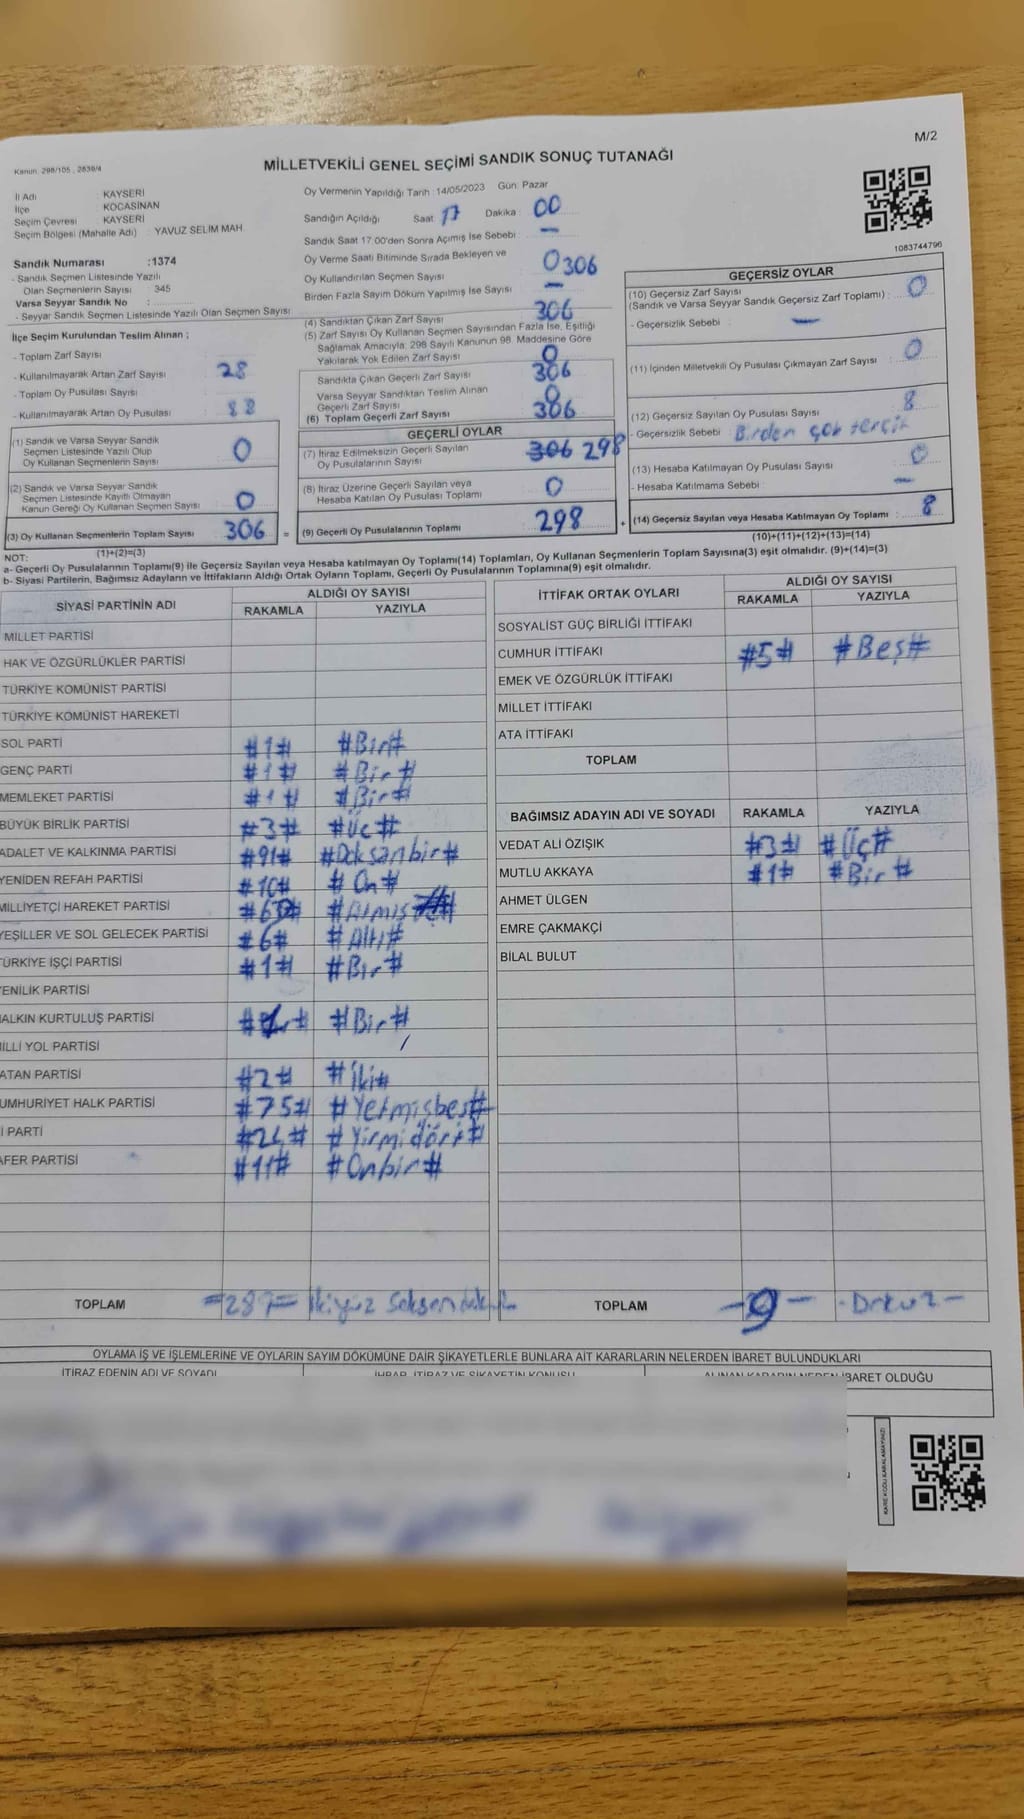 M/2
Kanun: 298/105 , 2839/4
MİLLETVEKİLİ GENEL SEÇİMİ SANDIK SONUÇ TUTANAĞI
İl Adı KAYSERİ
İlçe KOCASİNAN
Seçim Çevresi KAYSERİ
Seçim Bölgesi (Mahalle Adı) YAVUZ SELİM MAH.
Sandık Numarası :1374
- Sandık Seçmen Listesinde Yazılı
Olan Seçmenlerin Sayısı 345
Varsa Seyyar Sandık No :
- Seyyar Sandık Seçmen Listesinde Yazılı Olan Seçmen Sayısı
İlçe Seçim Kurulundan Teslim Alınan ;
- Toplam Zarf Sayısı
- Kullanılmayarak Artan Zarf Sayısı 28
- Toplam Oy Pusulası Sayısı
- Kullanılmayarak Artan Oy Pusulası
(1) Sandık ve Varsa Seyyar Sandık
Seçmen Listesinde Yazılı Olup
Oy Kullanan Seçmenlerin Sayısı 0
(2) Sandık ve Varsa Seyyar Sandık
Seçmen Listesinde Kayıtlı Olmayan
Kanun Gereği Oy Kullanan Seçmen Sayısı 0
(3) Oy Kullanan Seçmenlerin Toplam Sayısı 306 =
(1)+(2)=(3)
Oy Vermenin Yapıldığı Tarih : 14/05/2023 Gün: Pazar
Sandığın Açıldığı Saat 17 Dakika : 00
Sandık Saat 17:00'den Sonra Açımış İse Sebebi : –
Oy Verme Saati Bitiminde Sırada Bekleyen ve
Oy Kullandırılan Seçmen Sayısı 0 306
Birden Fazla Sayım Döküm Yapılmış İse Sayısı –
(4) Sandıktan Çıkan Zarf Sayısı 306
(5) Zarf Sayısı Oy Kullanan Seçmen Sayısından Fazla İse, Eşitliği
Sağlamak Amacıyla, 298 Sayılı Kanunun 98. Maddesine Göre
Yakılarak Yok Edilen Zarf Sayısı 0
Sandıkta Çıkan Geçerli Zarf Sayısı 306
Varsa Seyyar Sandıktan Teslim Alınan
Geçerli Zarf Sayısı 0
(6) Toplam Geçerli Zarf Sayısı 306
GEÇERLİ OYLAR
(7) İtiraz Edilmeksizin Geçerli Sayılan
Oy Pusulalarının Sayısı 306 298
(8) İtiraz Üzerine Geçerli Sayılan veya
Hesaba Katılan Oy Pusulası Toplamı 0
(9) Geçerli Oy Pusulalarının Toplamı 298 +
1083744796
GEÇERSİZ OYLAR
(10) Geçersiz Zarf Sayısı
(Sandık ve Varsa Seyyar Sandık Geçersiz Zarf Toplamı) : 0
- Geçersizlik Sebebi : –
(11) İçinden Milletvekili Oy Pusulası Çıkmayan Zarf Sayısı 0
(12) Geçersiz Sayılan Oy Pusulası Sayısı 8
- Geçersizlik Sebebi Birden çok tercih
(13) Hesaba Katılmayan Oy Pusulası Sayısı 0
- Hesaba Katılmama Sebebi : –
(14) Geçersiz Sayılan veya Hesaba Katılmayan Oy Toplamı : 8
(10)+(11)+(12)+(13)=(14)
NOT:
a- Geçerli Oy Pusulalarının Toplamı(9) ile Geçersiz Sayılan veya Hesaba katılmayan Oy Toplamı(14) Toplamları, Oy Kullanan Seçmenlerin Toplam Sayısına(3) eşit olmalıdır. (9)+(14)=(3)
b- Siyasi Partilerin, Bağımsız Adayların ve İttifakların Aldığı Ortak Oyların Toplamı, Geçerli Oy Pusulalarının Toplamına(9) eşit olmalıdır.
SİYASİ PARTİNİN ADI ALDIĞI OY SAYISI
RAKAMLA YAZIYLA
MİLLET PARTİSİ
HAK VE ÖZGÜRLÜKLER PARTİSİ
TÜRKİYE KOMÜNİST PARTİSİ
TÜRKİYE KOMÜNİST HAREKETİ
SOL PARTİ #1# #Bir#
GENÇ PARTİ #1# #Bir#
MEMLEKET PARTİSİ #1# #Bir#
BÜYÜK BİRLİK PARTİSİ #3# #Üç#
ADALET VE KALKINMA PARTİSİ #91# #Doksanbir#
YENİDEN REFAH PARTİSİ #10# #On#
MİLLİYETÇİ HAREKET PARTİSİ
YEŞİLLER VE SOL GELECEK PARTİSİ #6# #Altı#
TÜRKİYE İŞÇİ PARTİSİ #1# #Bir#
YENİLİK PARTİSİ
ALKIN KURTULUŞ PARTİSİ #Bir#
İLLİ YOL PARTİSİ
ATAN PARTİSİ #2# #İki#
UMHURİYET HALK PARTİSİ #75# #Yetmişbeş#
İ PARTİ #24# #Yirmidört#
AFER PARTİSİ #11# #Onbir#
TOPLAM =289= İkiyüz Seksen dokuz
İTTİFAK ORTAK OYLARI ALDIĞI OY SAYISI
RAKAMLA YAZIYLA
SOSYALİST GÜÇ BİRLİĞİ İTTİFAKI
CUMHUR İTTİFAKI #5# #Beş#
EMEK VE ÖZGÜRLÜK İTTİFAKI
MİLLET İTTİFAKI
ATA İTTİFAKI
TOPLAM
BAĞIMSIZ ADAYIN ADI VE SOYADI RAKAMLA YAZIYLA
VEDAT ALİ ÖZIŞIK #3# #Üç#
MUTLU AKKAYA #1# #Bir#
AHMET ÜLGEN
EMRE ÇAKMAKÇİ
BİLAL BULUT
TOPLAM -9- -Dokuz-
OYLAMA İŞ VE İŞLEMLERİNE VE OYLARIN SAYIM DÖKÜMÜNE DAİR ŞİKAYETLERLE BUNLARA AİT KARARLARIN NELERDEN İBARET BULUNDUKLARI
İTİRAZ EDENİN ADI VE SOYADI İHBAR, İTİRAZ VE ŞİKAYETİN KONUSU ALINAN KARARIN NEDEN İBARET OLDUĞU